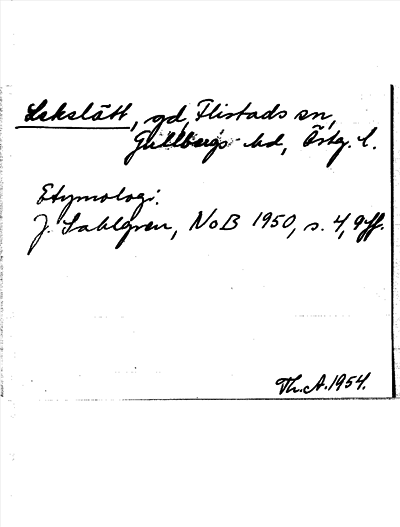 Lekslätt, gd, Flistads sn,
Gullbergs hd, Östg. l.
Etymologi.
J. Sahlgren, NoB 1950, s. 4, 9 ff.
Th. A. 1954.